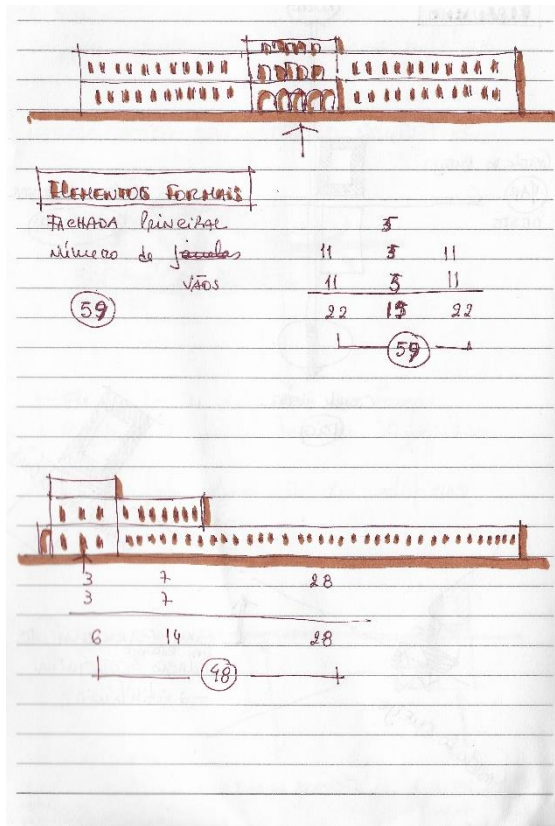 ELEMENTOS FORMAIS
FACHADA PRINCIPAL
Número de janelas
VÃOS
59
5
11 5 11
11 5 11
22 15 22
59
3 7 28
3 7
6 14 28
48